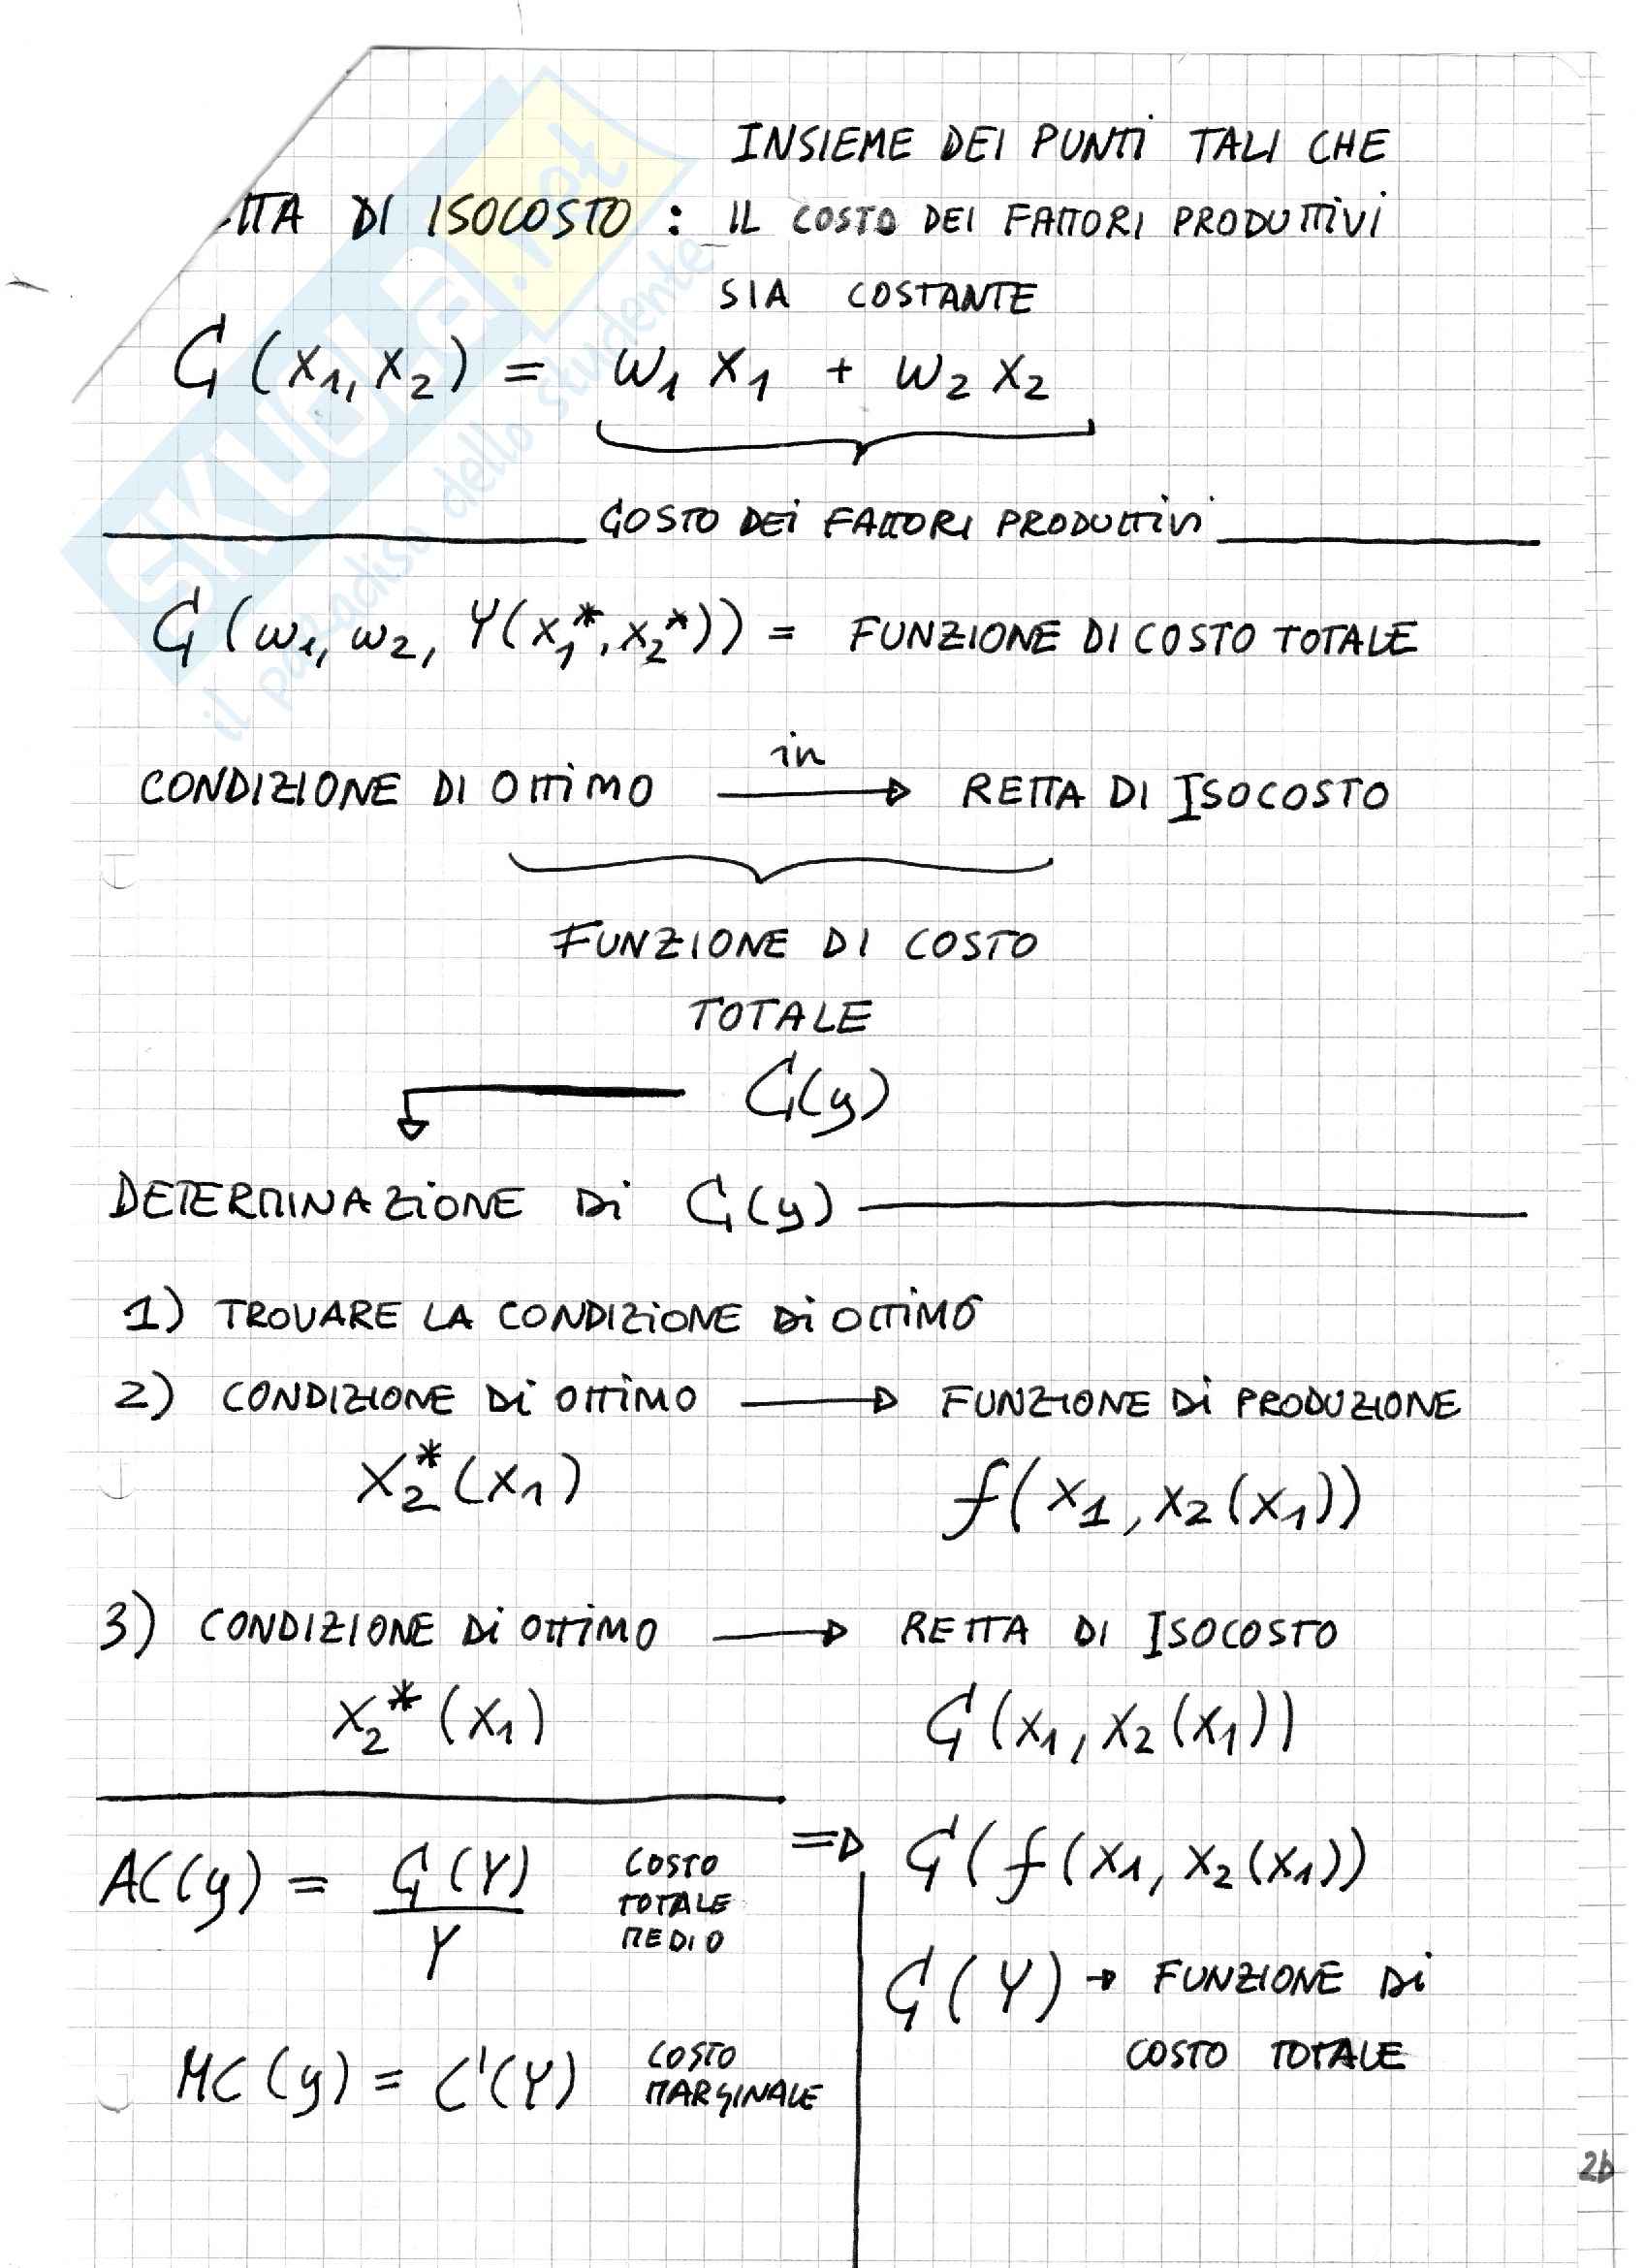 INSIEME DEI PUNTI TALI CHE
DI ISOCOSTO : IL COSTO DEI FATTORI PRODUTTIVI
SIA COSTANTE
C(x1, x2) = w1 x1 + w2 x2
COSTO DEI FATTORI PRODUTTIVI
C(w1, w2, Y(x1*, x2*)) = FUNZIONE DI COSTO TOTALE
in
CONDIZIONE DI OTTIMO → RETTA DI ISOCOSTO
FUNZIONE DI COSTO
TOTALE
C(y)
DETERMINAZIONE Di C(y)
1) TROVARE LA CONDIZIONE Di OTTIMO
2) CONDIZIONE Di OTTIMO → FUNZIONE Di PRODUZIONE
x2*(x1) f(x1, x2(x1))
3) CONDIZIONE Di OTTIMO → RETTA DI ISOCOSTO
x2*(x1) C(x1, x2(x1))
AC(y) = C(Y)/Y COSTO TOTALE MEDIO
MC(y) = C'(Y) COSTO MARGINALE
⇒ C(f(x1, x2(x1))
C(Y) → FUNZIONE Di
COSTO TOTALE
2b
SKUOLA.net
il paradiso dello studente